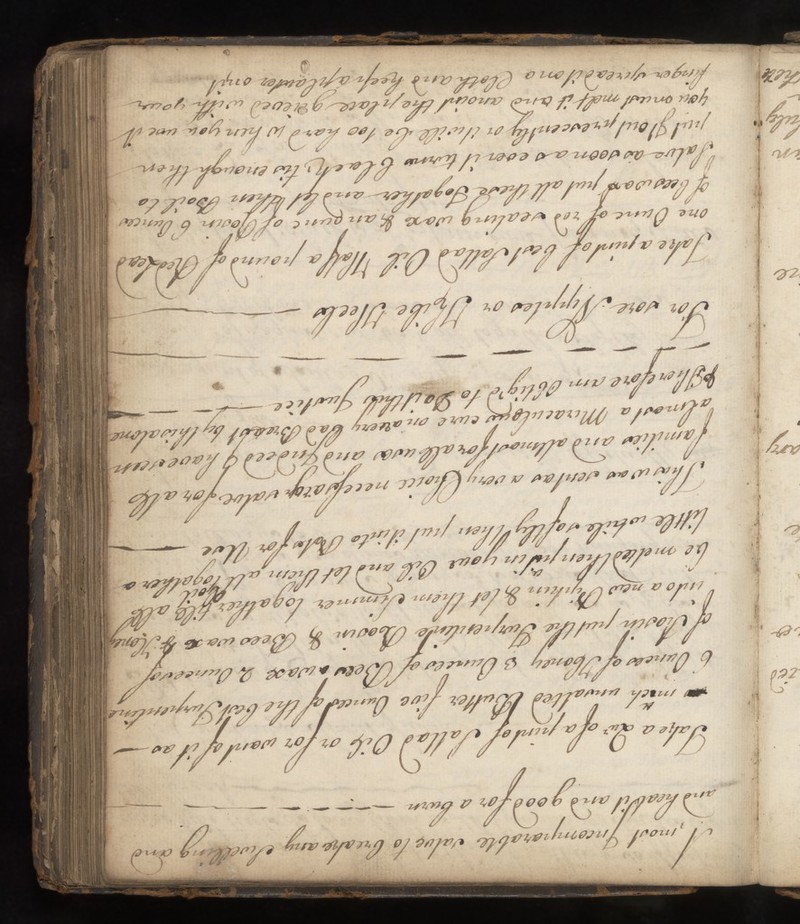 A most Incomparable salve to breake any Swelling and
and heal it and good for a burn
Take a Qr of a pint of Sallad Oil or for want of it as
much unsalted Butter five Ounces of the best Turpentine
6 Ounces of Honey 3 Ounces of Bees wax 2 Ounces of
of Rosin put the Turpentine Rosin & Bees wax & Hony
into a new Pipkin & let them simmer together till all
be melted then put in your Oil and let them all together boil a
little while softly then put it into Pots for Use
This was sent as a very Choice necessary salve for all
families and allmost for all uses and Indeed I have seen
almost a Miraculous cure on a very bad Breast by this alone
& Therefore am Oblig'd to Do it this Justice
For sore Nipples or Kibe Heels
Take a pint of best Sallad Oil Half a pound of Red Lead
one Ounc of red sealing wax & an ounc of Rosin 6 Ounces
of bees wax put all these together and let them Boil to
Salve as soon as ever it turns black tis enough then
put I out prescently or it will be too hard when you use it
you must melt it and anoint the place grieved with your
finger spread it on a Cloth and keep a plaister on it